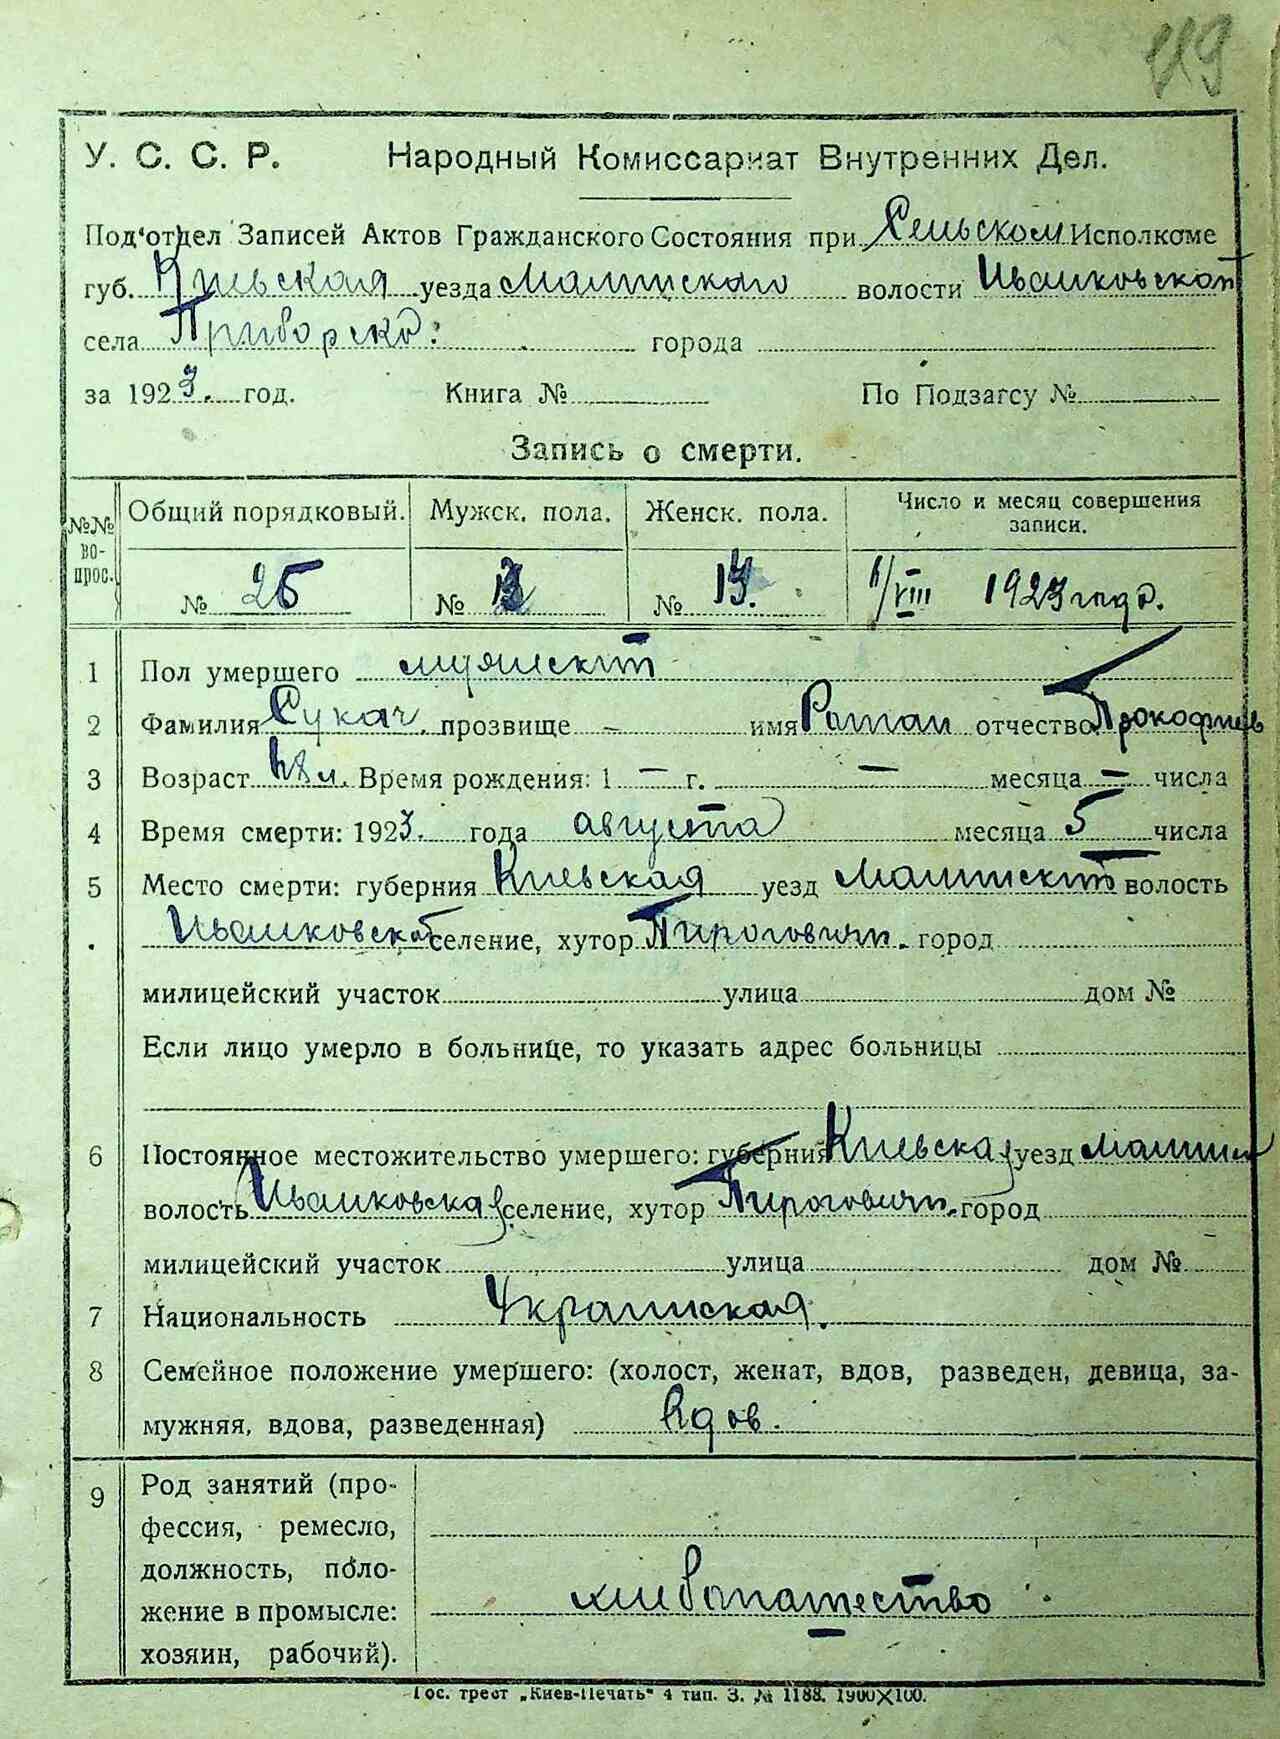 119
У. С. С. Р. Народный Комиссариат Внутренних Дел.
Под'отдел Записей Актов Гражданского Состояния при Сельском Исполкоме
губ. Киевская уезда Малинского волости Иванковской
села Приборско: города
за 1923. год. Книга № По Подзагсу №
Запись о смерти.
№№ вопрос. Общий порядковый. Мужск. пола. Женск. пола. Число и месяц совершения записи.
№ 25 № № 13. 6/VIII 1923 года.
1 Пол умершего мужский
2 Фамилия Сукач. прозвище – имя Роман отчество Прокофиев
3 Возраст Время рождения: 1 – г. – месяца – числа
4 Время смерти: 1923. года августа месяца 5 числа
5 Место смерти: губерния Киевская уезд Малинский волость
Иванковской селение, хутор Пироговичи. город
милицейский участок улица дом №
Если лицо умерло в больнице, то указать адрес больницы
6 Постоянное местожительство умершего: губерния Киевская уезд Малинск
волость Иванковская селение, хутор Пироговичи. город
милицейский участок улица дом №
7 Национальность Украинская.
8 Семейное положение умершего: (холост, женат, вдов, разведен, девица, за-
мужняя, вдова, разведенная) Вдов.
9 Род занятий (про-
фессия, ремесло,
должность, поло-
жение в промысле:
хозяин, рабочий).
хлебопашество
Гос. трест „Киев-Печать" 4 тип. З. № 1188. 1900×100.